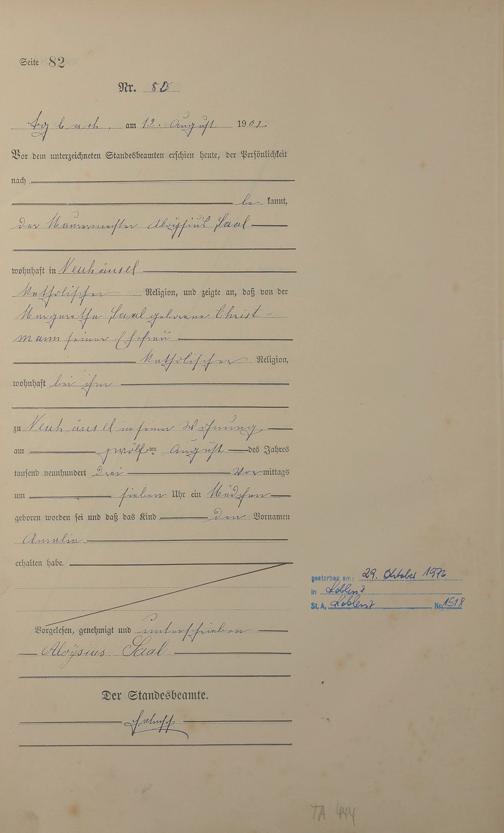 Seite 82
Nr. 80
am 12. August 190
Vor dem unterzeichneten Standesbeamten erschien heute, der Persönlichkeit
nach
be kannt,
der Maurermeister Aloysius Saal
wohnhaft in Neuhäusel
katholischer Religion, und zeigte an, daß von der
Margaretha Saal geborene Christ-
mann seiner Ehefrau
katholischer Religion,
wohnhaft bei ihm
zu Neuhäusel in seiner Wohnung
am zwölften August des Jahres
tausend neunhundert drei Vor mittags
um sieben Uhr ein Mädchen
geboren worden sei und daß das Kind den Vornamen
Amalie
erhalten habe.
gestorben am: 29. Oktober 1976
in Koblenz
St. A. Koblenz Nr. 1518
Vorgelesen, genehmigt und unterschrieben
Aloysius Saal
Der Standesbeamte.
TA 444